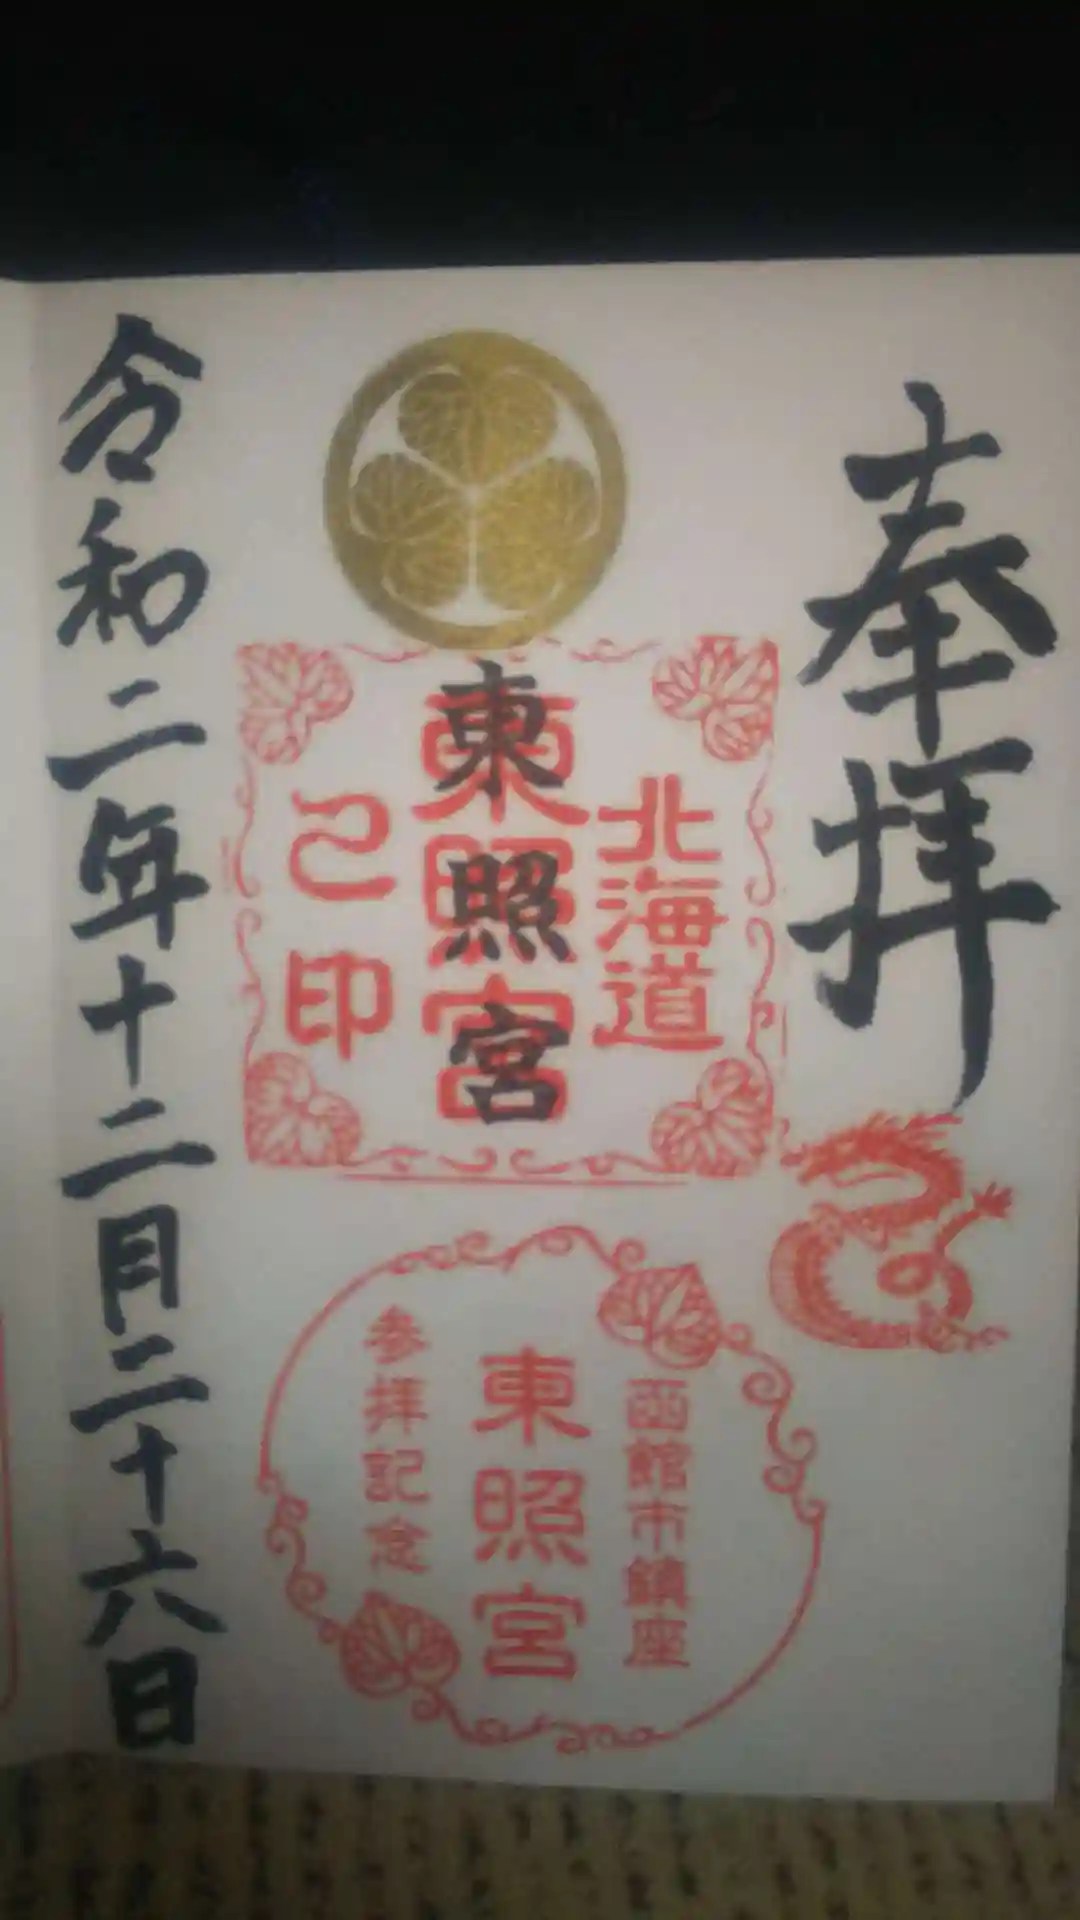 奉拝
北海道
東照宮
東照宮
之印
函館市鎮座
東照宮
参拝記念
令和二年十二月二十六日